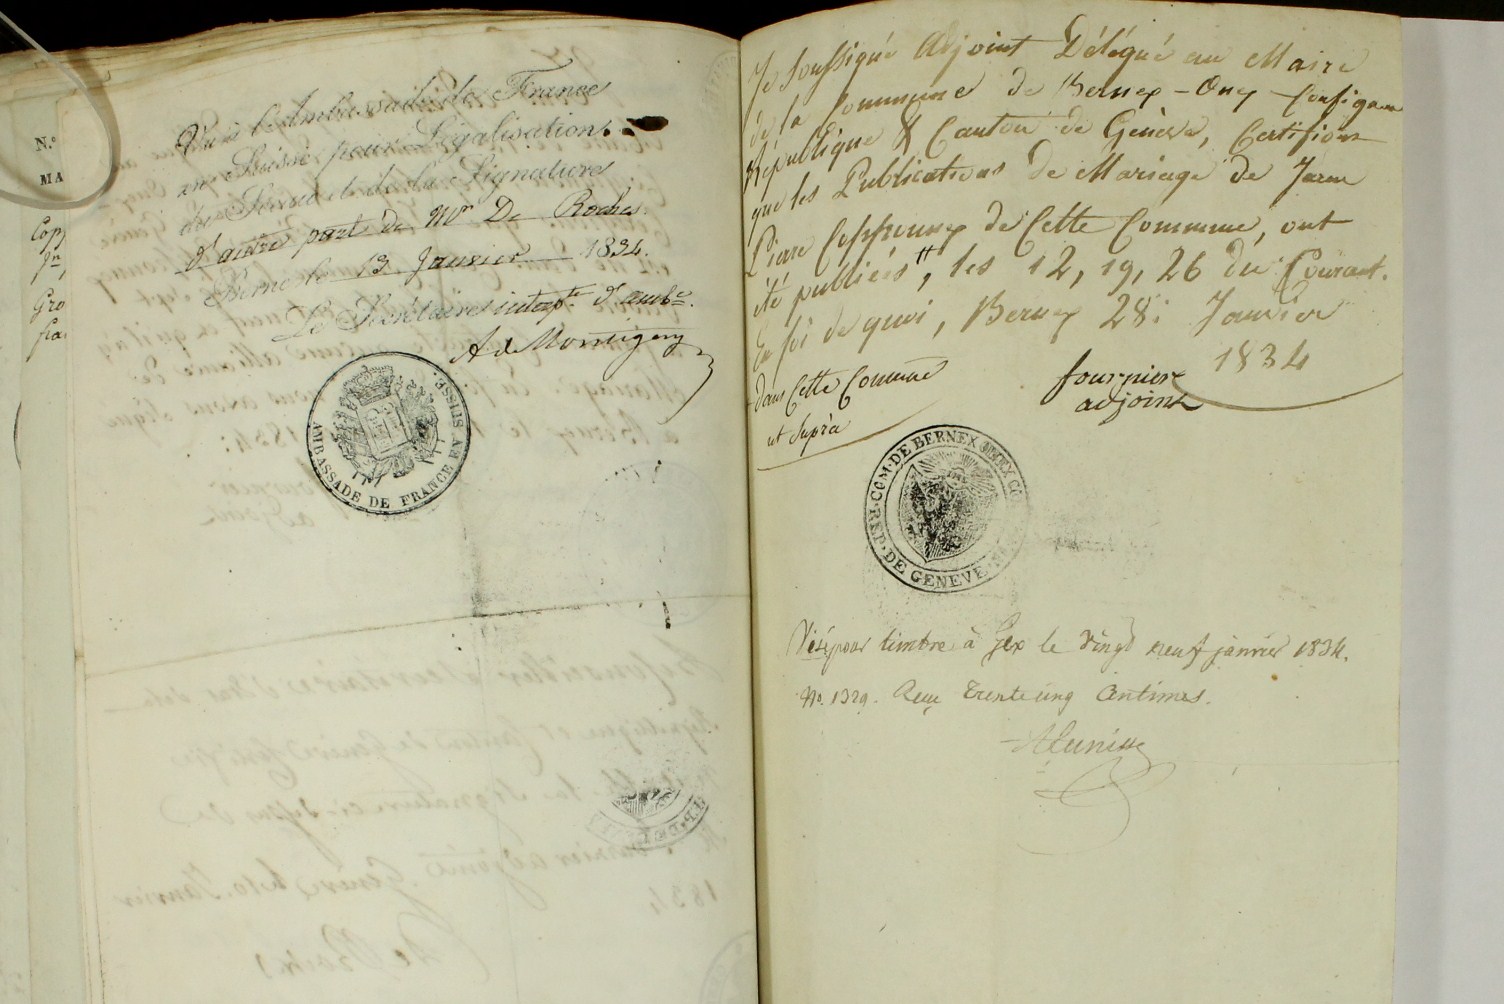 N.º
MA
Cop
Gro
fra
Vu à l'Ambassade de France
en Suisse pour Légalisation
du Sceau et de la Signature
d'autre part de Mr De Roches
Berne le 13 Janvier 1834.
Le Secrétaire interpte d'ambe.
A de Montigny
AMBASSADE DE FRANCE EN SUISSE.
Je soussigné Adjoint Délégué au Maire
de la Commune de Bernex - Onex - Confignon
République & Canton de Genève, Certifions
que les Publications de Mariage de
Pierre de Cette Commune, ont
été publiées #, les 12, 19, 26 du Courant.
En foi de quoi, Bernex 28: Janvier
1834
dans Cette Commune
ut Supra
fournier
adjoint
REP. DE GENEVE COM. DE BERNEX ONEX CO
Visé pour timbre à Gex le vingt neuf janvier 1834.
No. 1329. Reçu trente cinq Centimes.